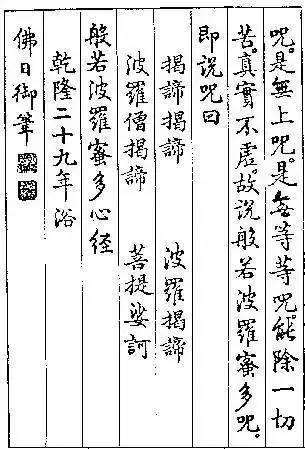 咒。是無上咒。是無等等咒。能除一切
苦。真實不虛。故說般若波羅蜜多咒。
即說咒曰
揭諦揭諦　波羅揭諦
波羅僧揭諦　菩提娑訶
般若波羅蜜多心经
乾隆二十九年浴
佛日御筆